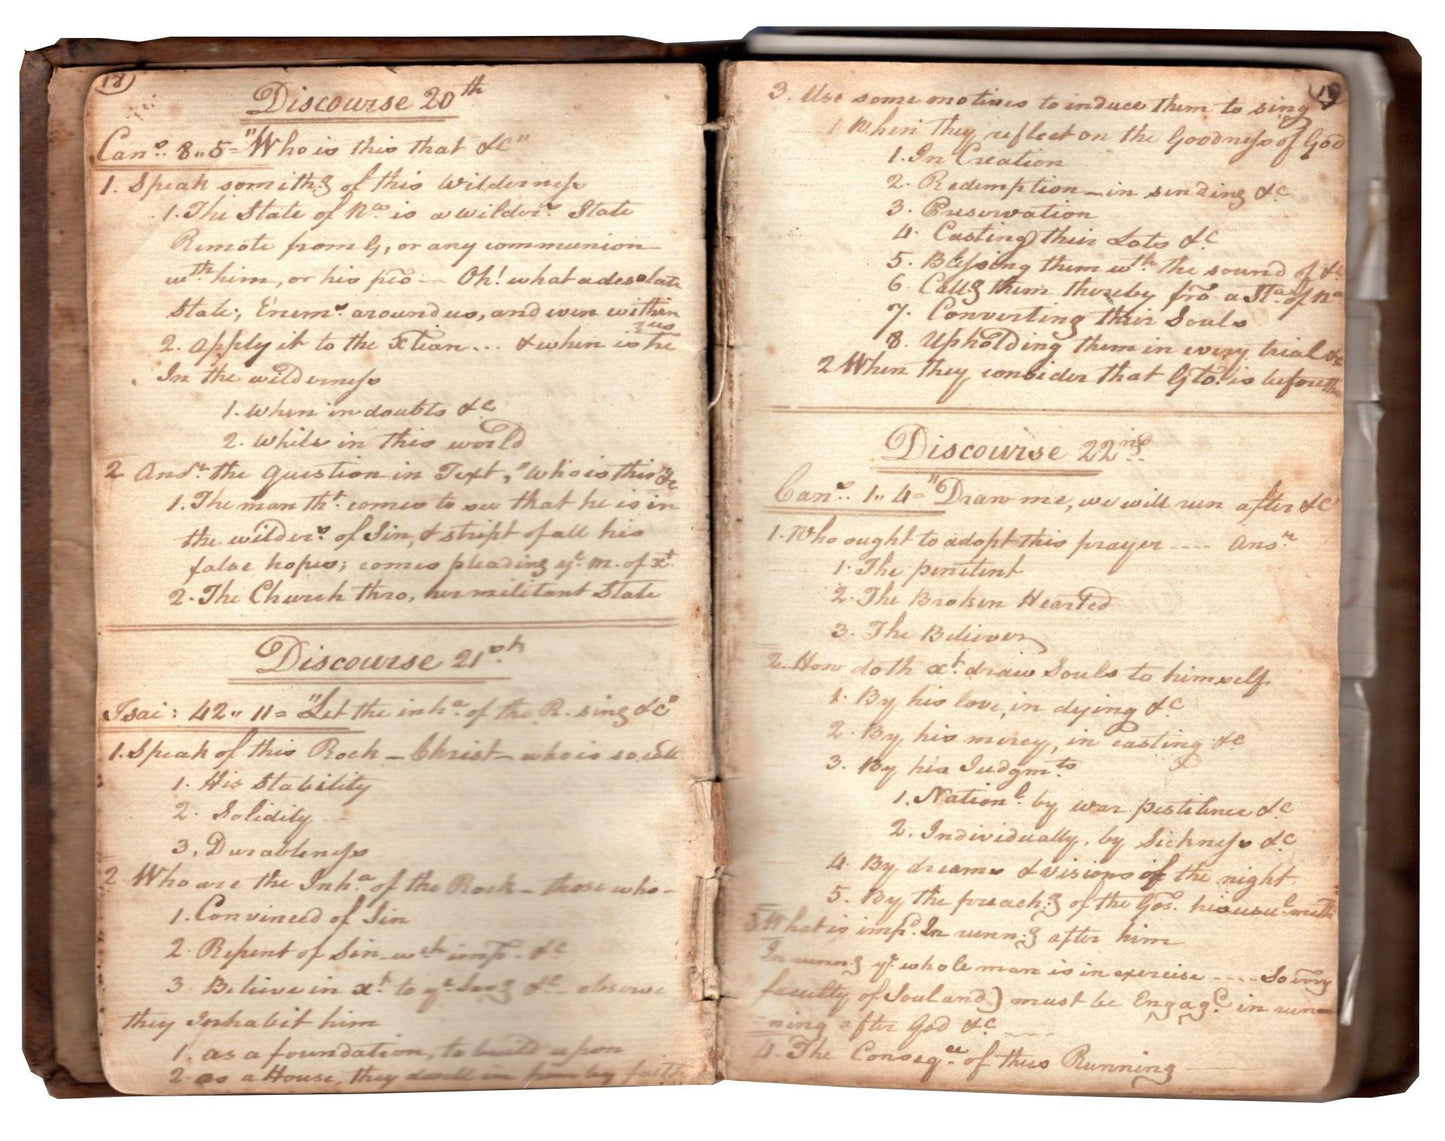 18
Discourse 20th
Cans. 8,,5 = "Who is this that &c"
1. Speak someithg of this Wilderness
1. The State of Na is a wilders State
Remote from G, or any communion
wth him, or his peo -- Oh! what a desolate
State, Enems around us, and even within
us
2. apply it to the Xtian ... & when is he
In the wilderness
1. when in doubts &c
2. while in this world
2 Ansr the question in Text, "Who is this" &c
1. The man tht comes to see that he is in
the wilders of Sin, & stript of all his
false hopes; comes pleading ye m. of Xt
2. The Church thro, her militant State
Discourse 21st
Isai: 42,, 11 = "Let the inha. of the R. sing &c"
1. Speak of this Rock - Christ - who is so call
1. His Stability
2. Solidity
3. Durableness
2. Who are the Inha of the Rock - those who -
1. Convinced of Sin
2. Repent of Sin - wch imp. &c
3. Believe in Xt to ye Savg &c - observe
they Inhabit him
1. as a foundation, to build upon
2. as a House, they dwell in him by faith
19
3. Use some motives to induce them to sing
1 When they reflect on the Goodness of God
1. In Creation
2. Redemption - in sending &c
3. Preservation
4. Casting their Lots &c
5. Blessing them wth the sound of &c
6. Callg them thereby fro a Sta. of Na
7. Converting their Souls
8. Upholding them in every trial &c
2 When they consider that Glo. is before them
Discourse 22nd
Cans. 1,, 4 = "Draw me, we will run after &c
1. Who ought to adopt this prayer ---- Ansr
1. The penitent
2. The Broken Hearted
3. The Believer
2. How doth Xt draw Souls to himself
1. By his love, in dying &c
2. By his mercy, in casting &c
3. By his Judgmts
1. Nationl by war pestilence &c
2. Individually, by Sickness &c
4. By dreams & visions of the night
5. By the preachg of the Gos. his usul meth
3. What is impd In runng after him
In runng ye whole man is in exercise ---- So every
faculty of Soul and) must be Engagd in run-
ning after God &c ----
4. The Conseqce of thus Running ----